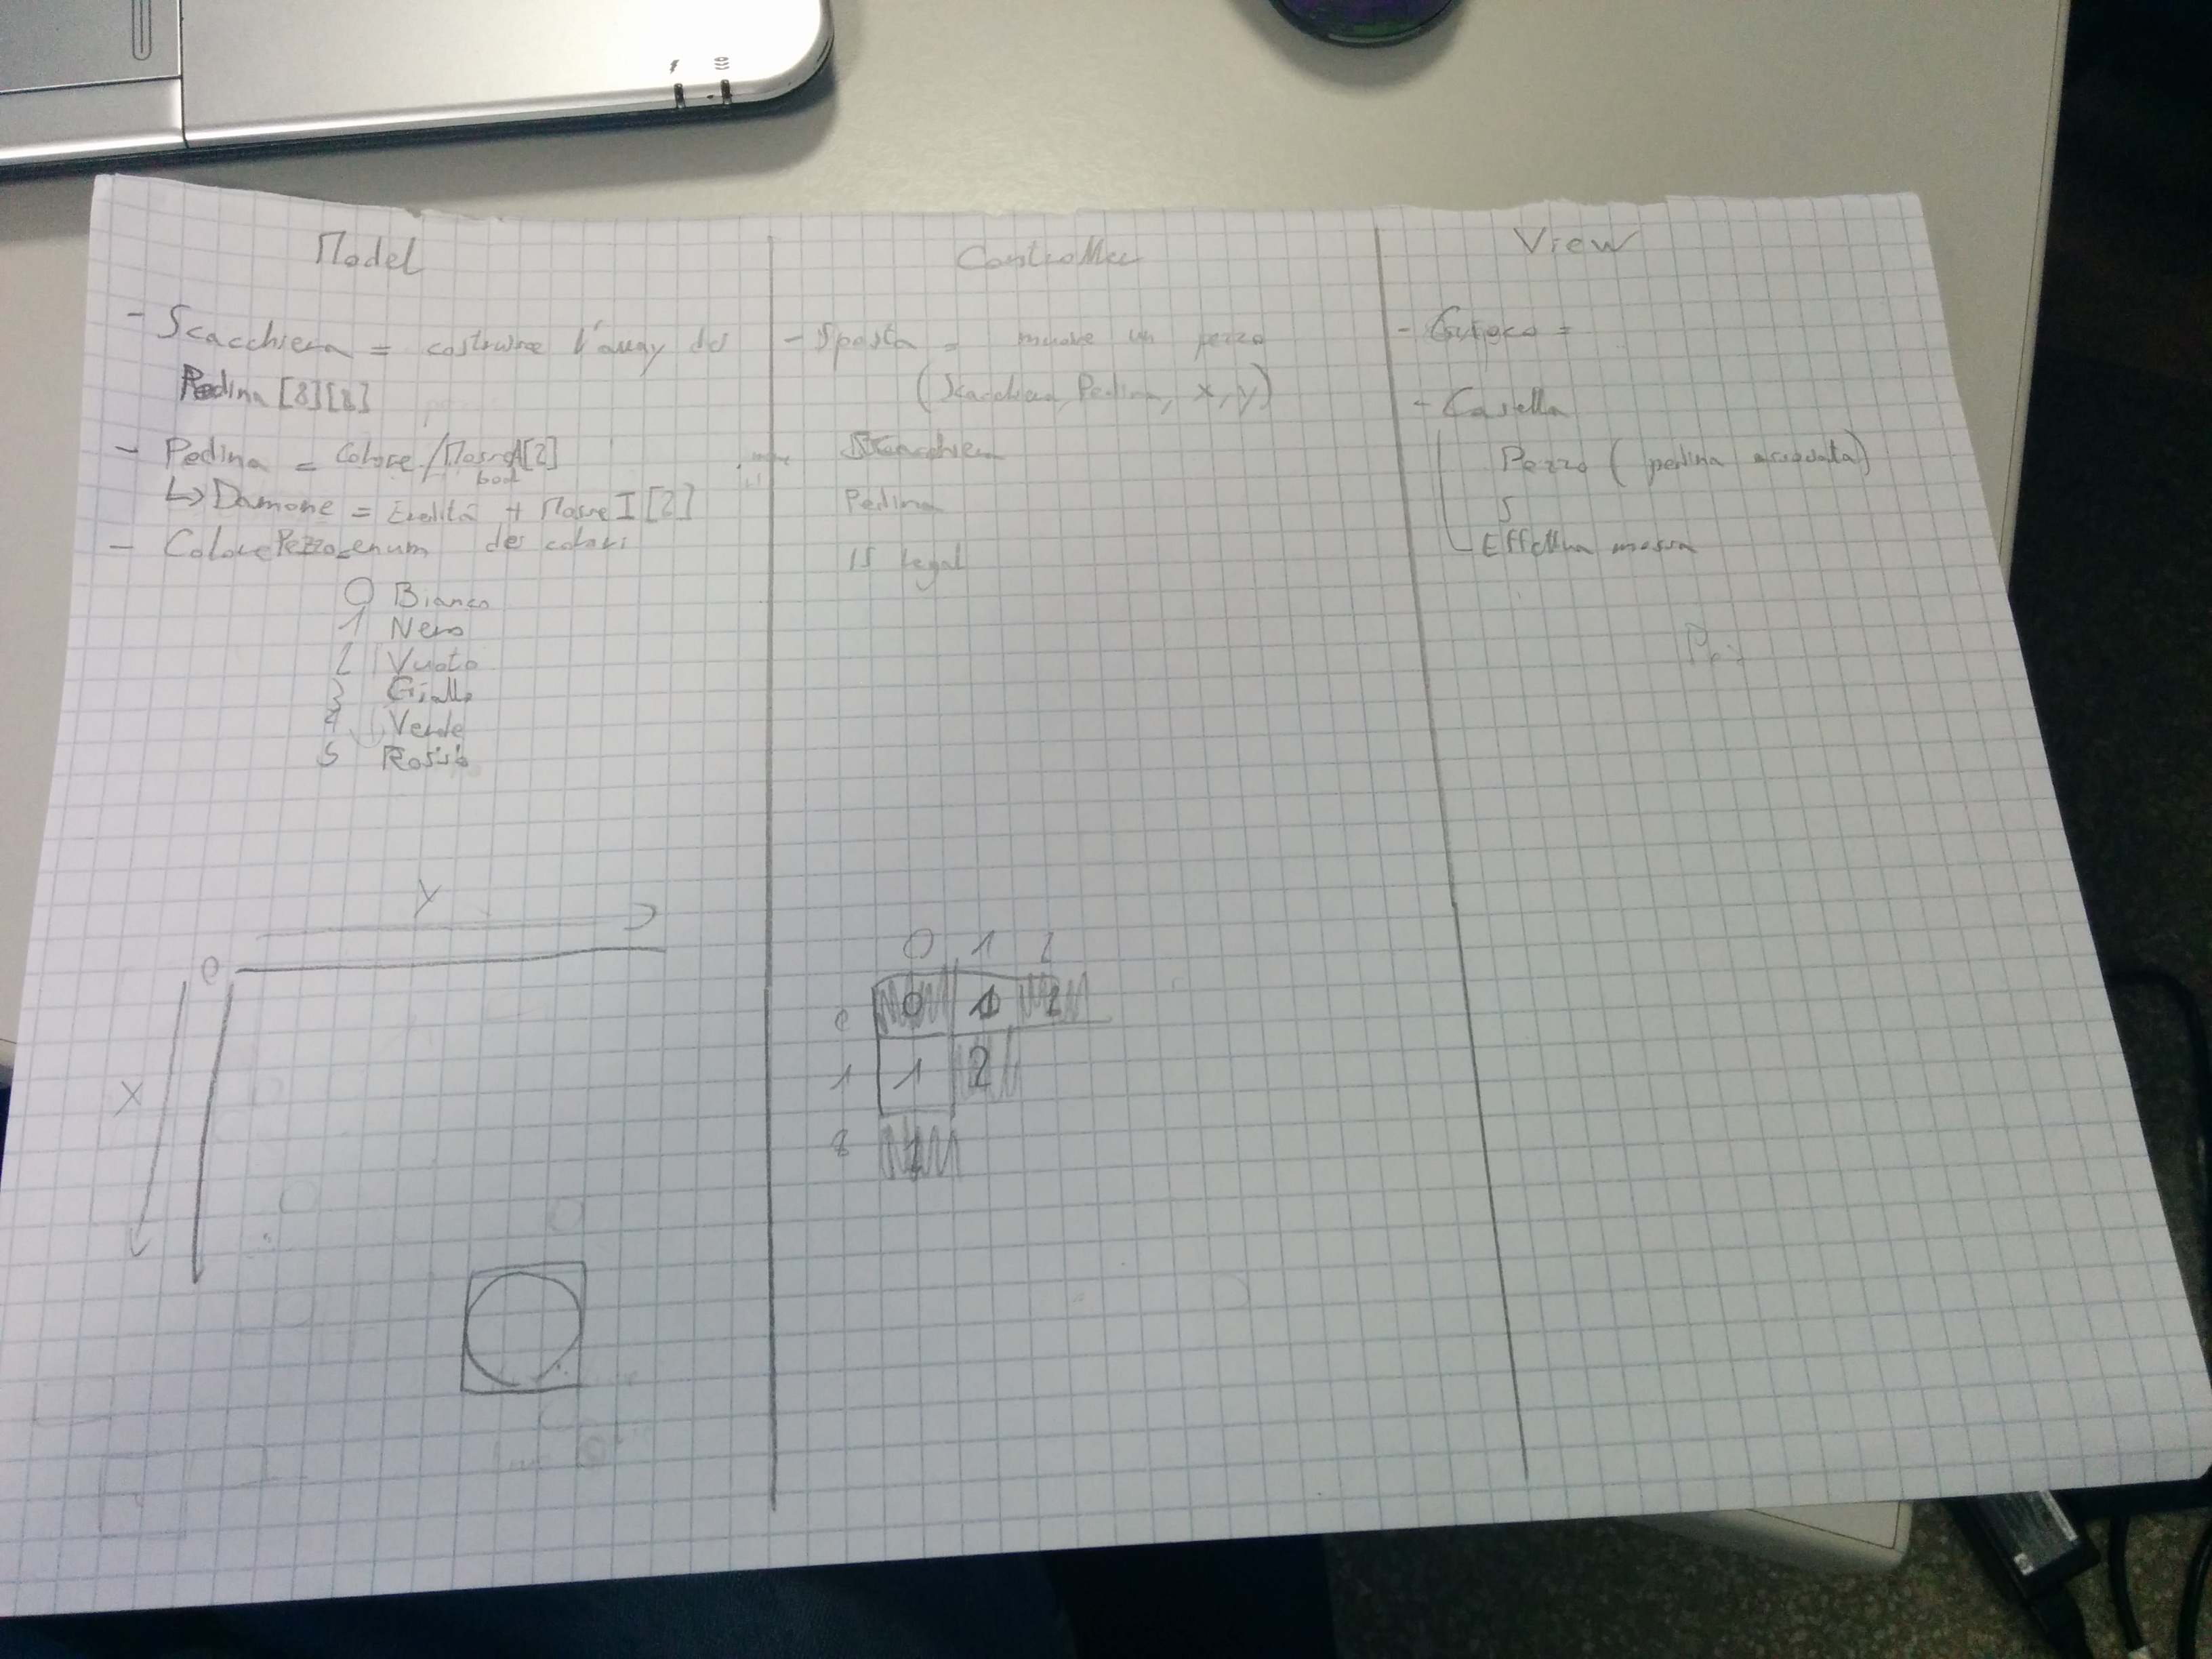 Model
- Scacchiera = costruire l'array di
Pedina [8][8]
- Pedina = Colore / MosseA[2]
bool
↳ Damone = Eredita + MosseI[2]
- ColorePezzo = enum dei colori
0 Bianco
1 Nero
2 Vuoto
3 Giallo
4 Verde
5 Rosso
Y
0
X
Controller
- Sposta = muove un pezzo
(Scacchiera, Pedina, x, y)
Scacchiera
Pedina
IS legal
0 1 2
0 0 1 2
1 1 2
2 2
View
- Gioco =
- Casella
Pezzo (pedina acquisita)
S
Effettua mossa